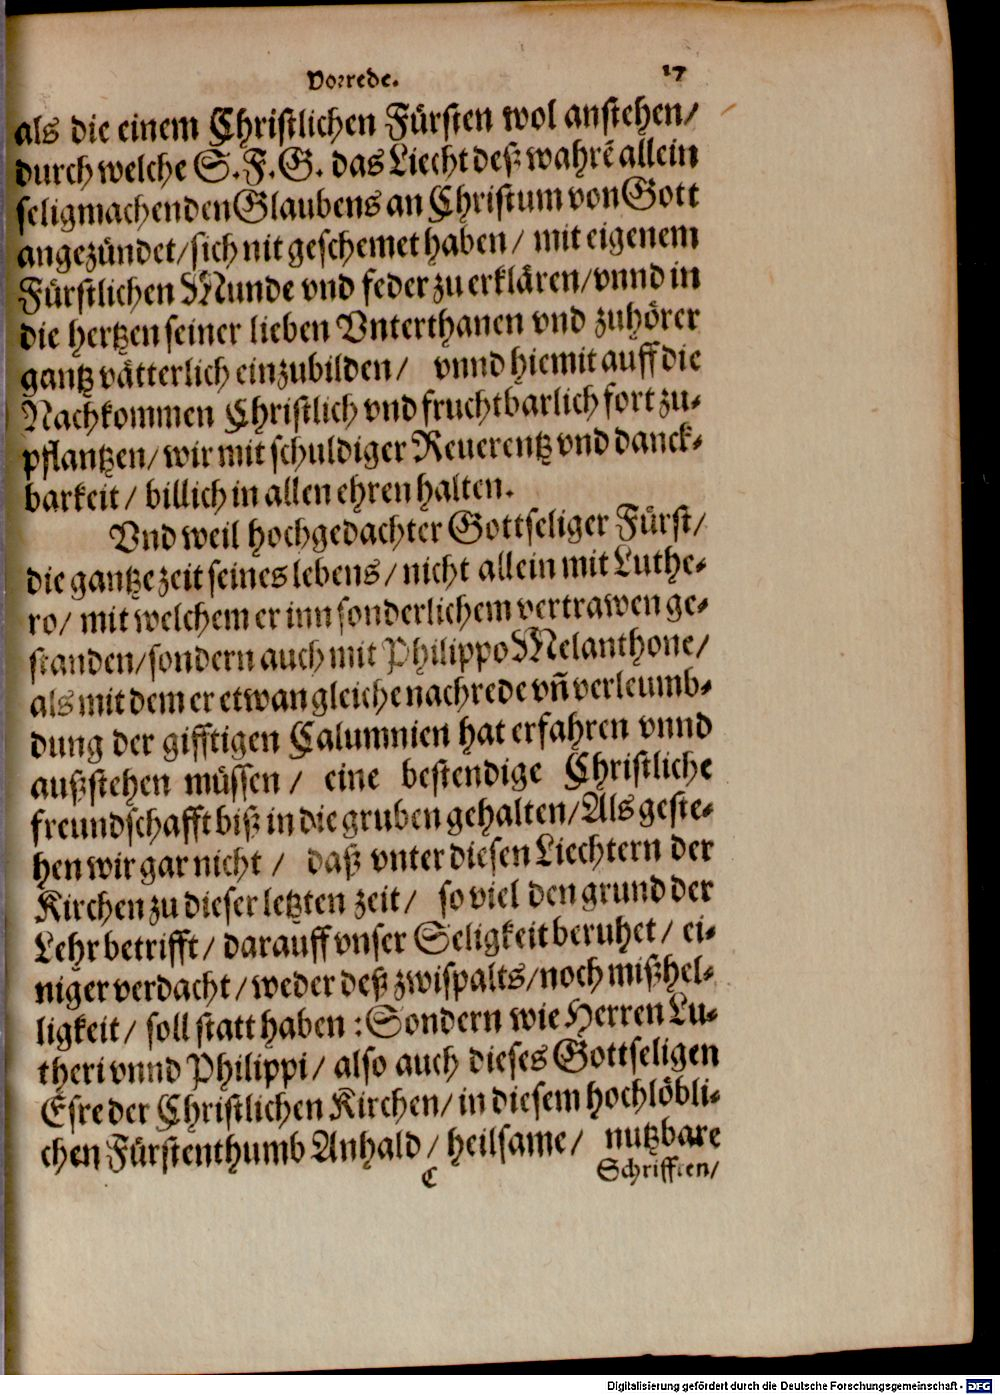 Vorrede. 17
als die einem Christlichen Fürsten wol anstehen/
durch welche S. F. G. das Liecht deß wahrẽ allein
seligmachenden Glaubens an Christum von Gott
angezündet/sich nit geschemet haben/ mit eigenem
Fürstlichen Munde vnd feder zu erklären/vnnd in
die hertzen seiner lieben Vnterthanen vnd zuhörer
gantz vätterlich einzubilden/ vnnd hiemit auff die
Nachkommen Christlich vnd fruchtbarlich fort zu-
pflantzen/wir mit schuldiger Reuerentz vnd danck-
barkeit/ billich in allen ehren halten.
Vnd weil hochgedachter Gottseliger Fürst/
die gantze zeit seines lebens/nicht allein mit Luthe-
ro/ mit welchem er inn sonderlichem vertrawen ge-
standen/sondern auch mit Philippo Melanthone/
als mit dem er etwan gleiche nachrede vñ verleumb-
dung der gifftigen Calumnien hat erfahren vnnd
außstehen müssen/ eine bestendige Christliche
freundschafft biß in die gruben gehalten/Als geste-
hen wir gar nicht/ daß vnter diesen Liechtern der
Kirchen zu dieser letzten zeit/ so viel den grund der
Lehr betrifft/ darauff vnser Seligkeit beruhet/ ei-
niger verdacht/weder deß zwispalts/noch mißhel-
ligkeit/ soll statt haben: Sondern wie Herren Lu-
theri vnnd Philippi/ also auch dieses Gottseligen
Esre der Christlichen Kirchen/in diesem hochlöbli-
chen Fürstenthumb Anhald/ heilsame/ nutzbare
C Schrifften/
Digitalisierung gefördert durch die Deutsche Forschungsgemeinschaft - DFG